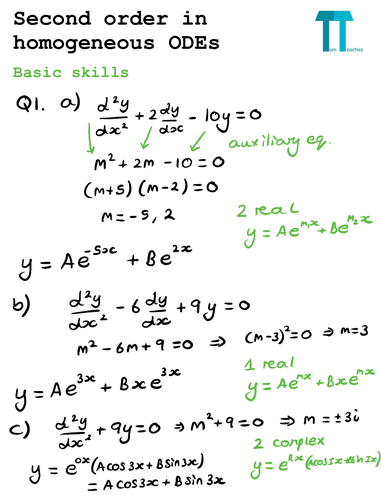 Second order in
homogeneous ODEs
TT
Tom Teaches
Basic skills
Q1. a) d²y/dx² + 2 dy/dx - 10y = 0
auxiliary eq.
m² + 2m - 10 = 0
(m+5)(m-2) = 0
m = -5, 2
2 real
y = Ae^{m₁x} + Be^{m₂x}
y = Ae^{-5x} + Be^{2x}
b) d²y/dx² - 6 dy/dx + 9y = 0
m² - 6m + 9 = 0 ⇒ (m-3)² = 0 ⇒ m = 3
1 real
y = Ae^{mx} + Bxe^{mx}
y = Ae^{3x} + Bxe^{3x}
c) d²y/dx² + 9y = 0 ⇒ m² + 9 = 0 ⇒ m = ±3i
2 complex
y = e^{Rx}(AcosIx + BsinIx)
y = e^{0x}(Acos3x + Bsin3x)
= Acos3x + Bsin3x